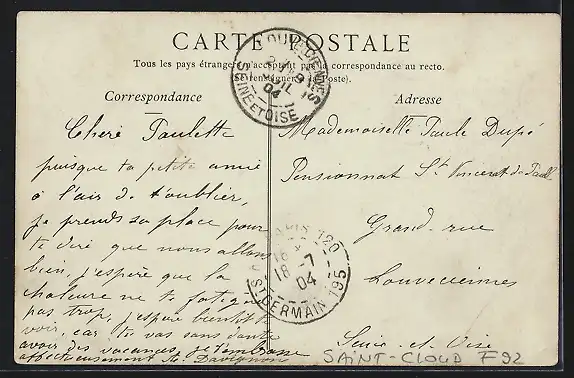 CARTE POSTALE
Tous les pays étrangers n'acceptent pas la correspondance au recto.
(Se renseigner à la Poste).
Correspondance
Adresse
Chère Paulette
puisque ta petite amie
à l'air de t'oublier,
je prends sa place pour
te dire que nous allons
bien, j'espère que la
chaleure ne te fatigue
pas trop, j'espère bientôt te
voir, car tu vas sans doute
avoir des vacances, je t'embrasse
affectueusement M. Davignon
Mademoiselle Paule Dupé
Pensionnat St Vincent de Paul
Grand-rue
Louveciennes
Seine-et-Oise
LOUVECIENNES
SEINE ET OISE
04
120
18-7
04
ST GERMAIN 195
SAINT-CLOUD F92